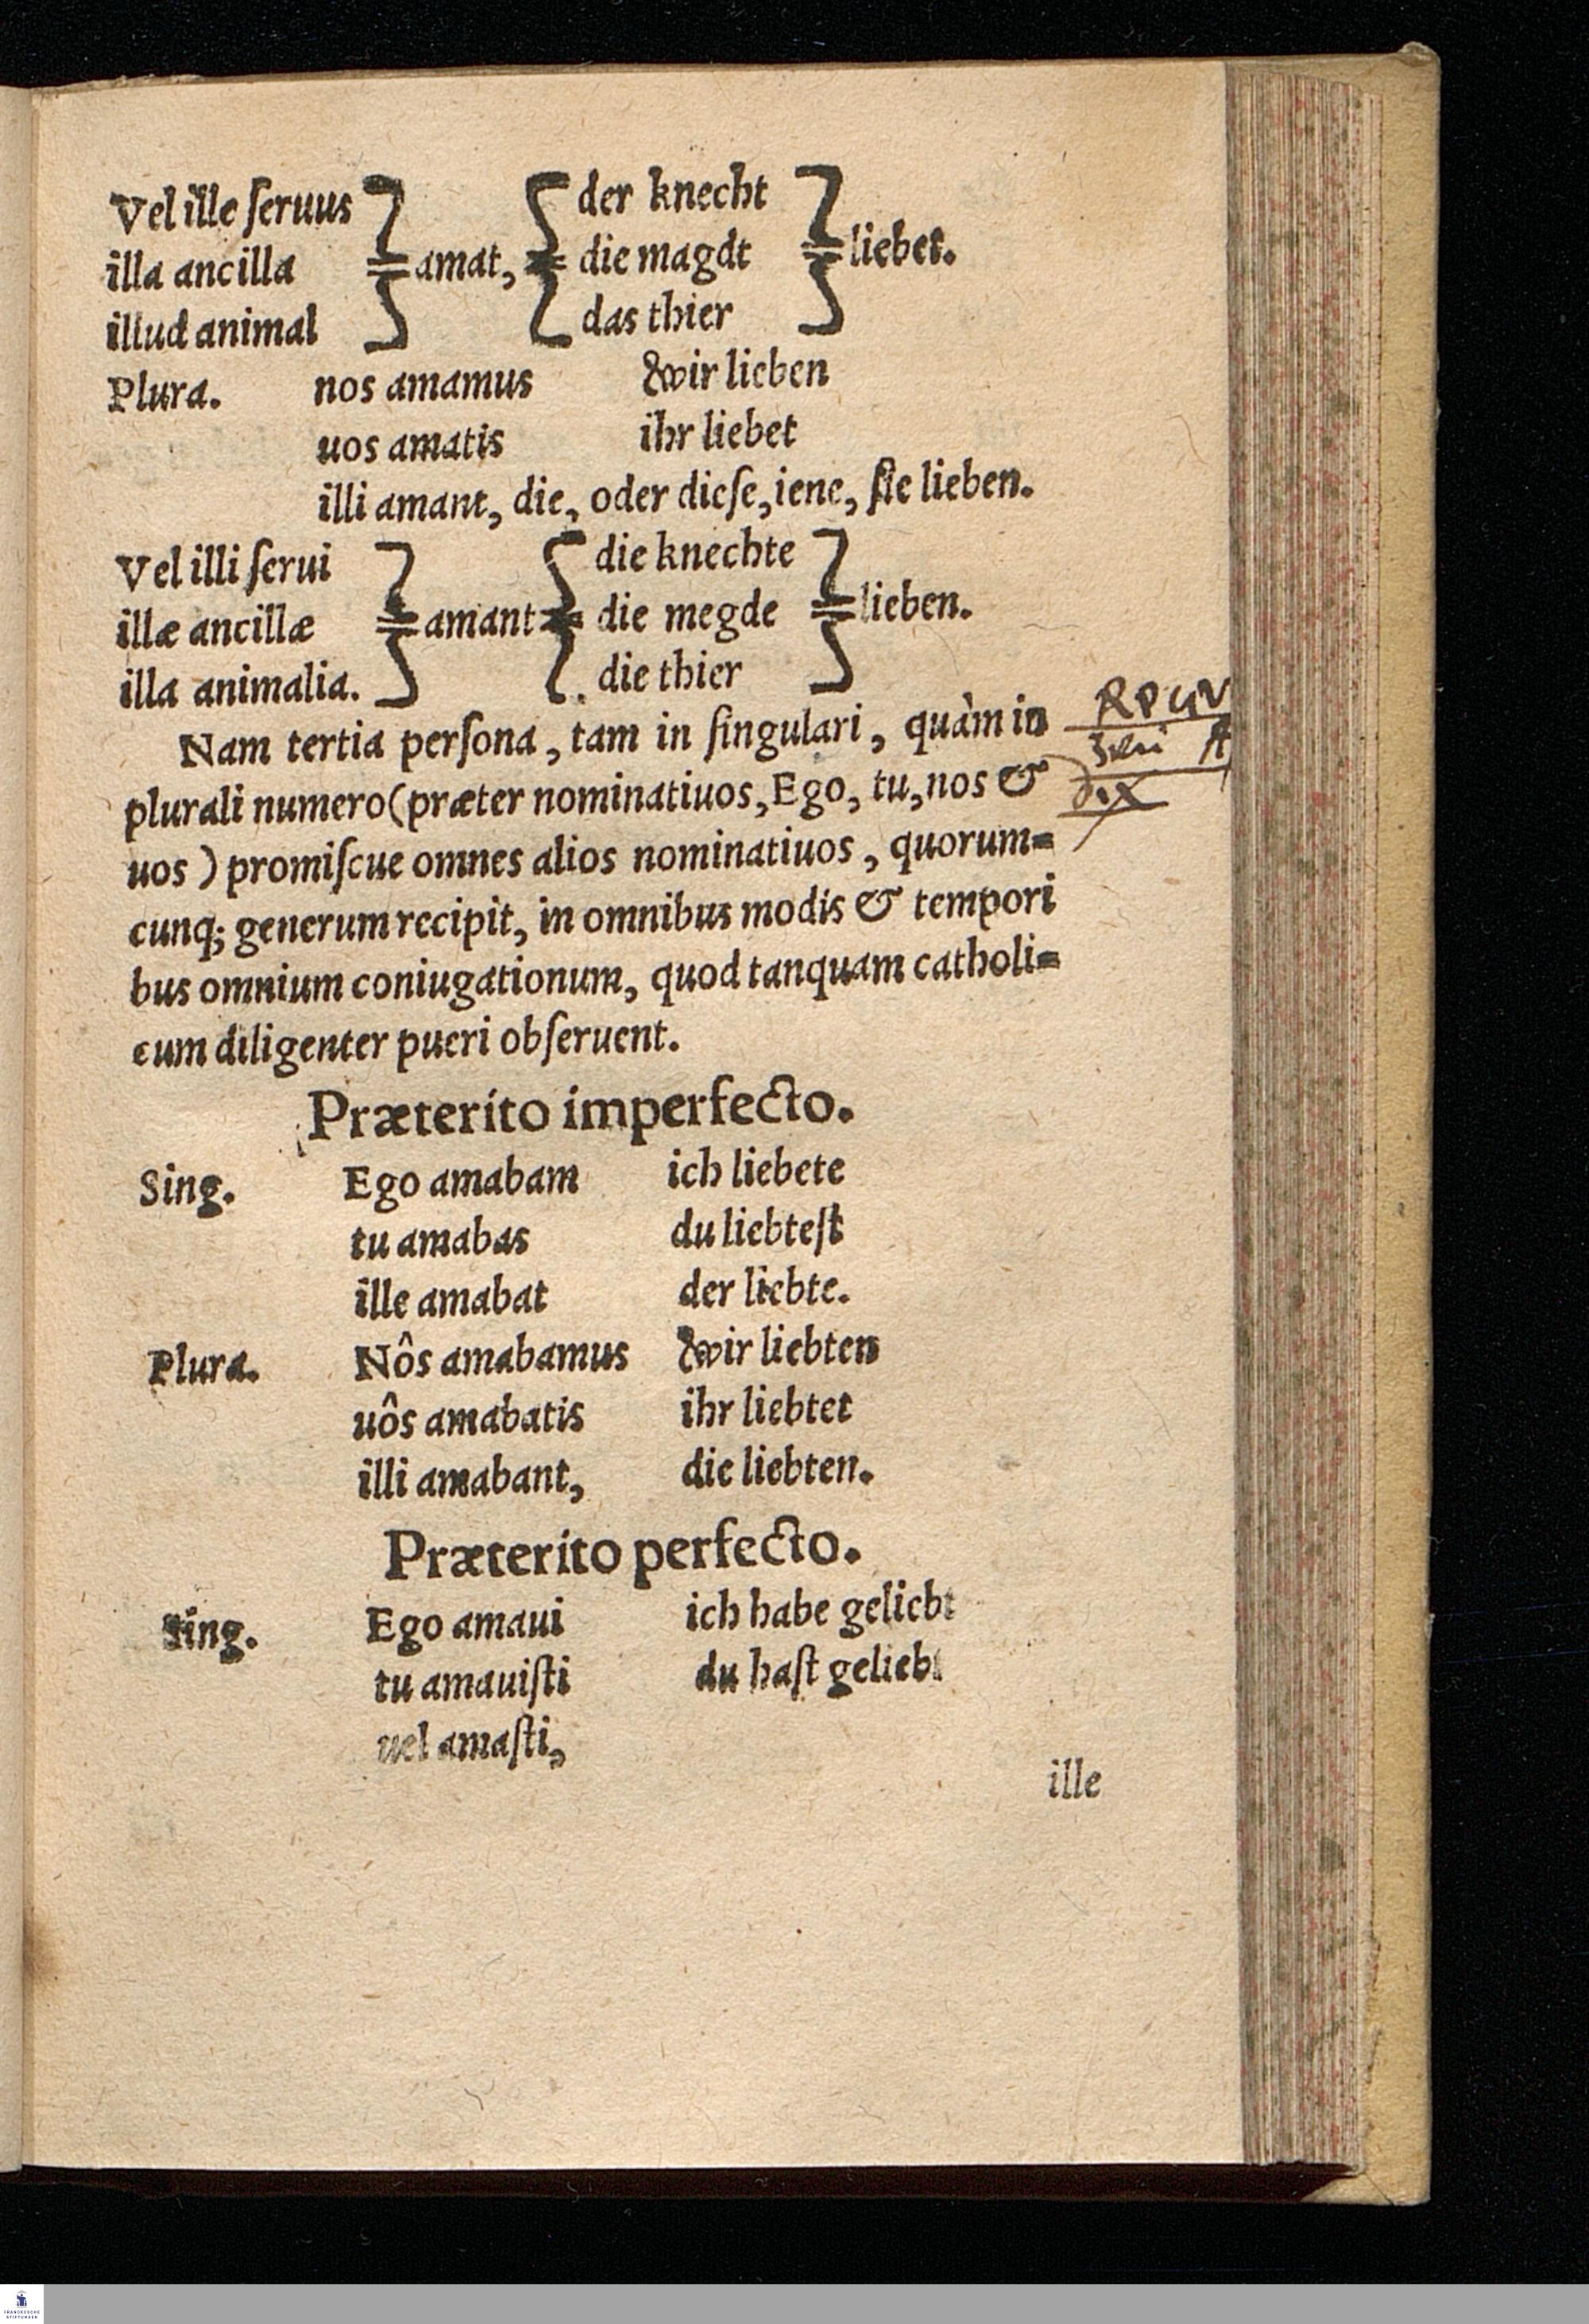 Vel ille ſeruus } amat, { der knecht } liebet.
illa ancilla die magdt
illud animal das thier
Plura. nos amamus wir lieben
uos amatis ihr liebet
illi amant, die, oder dieſe, iene, ſie lieben.
Vel illi ſerui } amant { die knechte } lieben.
illæ ancillæ die megde
illa animalia. die thier
Nam tertia perſona, tam in ſingulari, quàm in
plurali numero (præter nominatiuos, Ego, tu, nos &
uos) promiſcue omnes alios nominatiuos, quorum=
cunq; generum recipit, in omnibus modis & tempori
bus omnium coniugationum, quod tanquam catholi=
cum diligenter pueri obſeruent.
Præterito imperfecto.
Sing. Ego amabam ich liebete
tu amabas du liebteſt
ille amabat der liebte.
Plura. Nôs amabamus wir liebten
uôs amabatis ihr liebtet
illi amabant, die liebten.
Præterito perfecto.
Sing. Ego amaui ich habe geliebt
tu amauiſti du haſt geliebt
uel amaſti,
ille
FRANCKESCHE
STIFTUNGEN